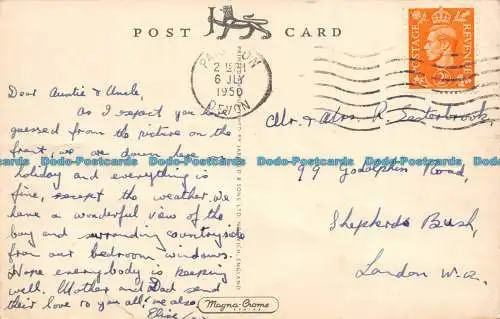 POST CARD
PAIGNTON
2 15 PM
6 JLY
1950
DEVON
POSTAGE REVENUE
Dear Auntie & Uncle,
As I expect you have
guessed from the picture on the
front, we are down here on
holiday and everything is
fine, except the weather. We
have a wonderful view of the
bay and surrounding countryside
from our bedroom windows.
Hope everybody is keeping
well. Mother and Dad send
their love to you all, we also,
Elsie
Mr. & Mrs. R.
99 Godolphin Road,
Shepherds Bush,
London W.12.
Magna-Crome
SERIES
Dodo-Postcards